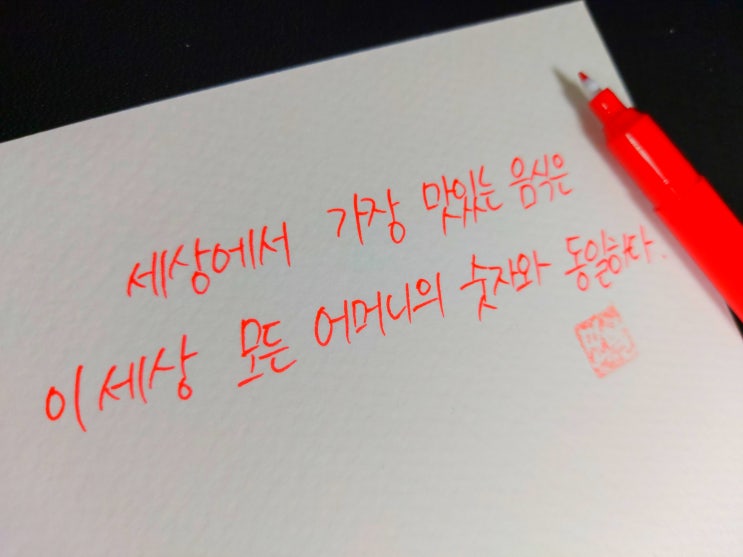 세상에서 가장 맛있는 음식은
이 세상 모든 어머니의 숫자와 동일하다.